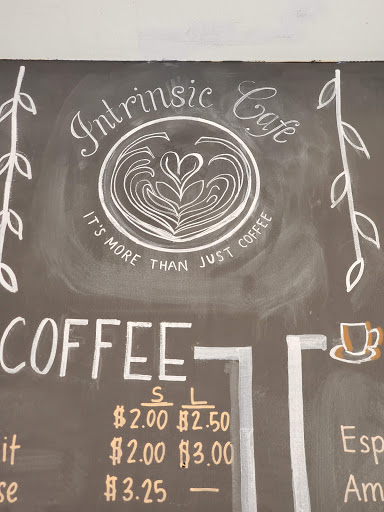 Intrinsic Cafe
IT'S MORE THAN JUST COFFEE
COFFEE
S L
$2.00 $2.50
it $2.00 $3.00
se $3.25 —
Esp
Am